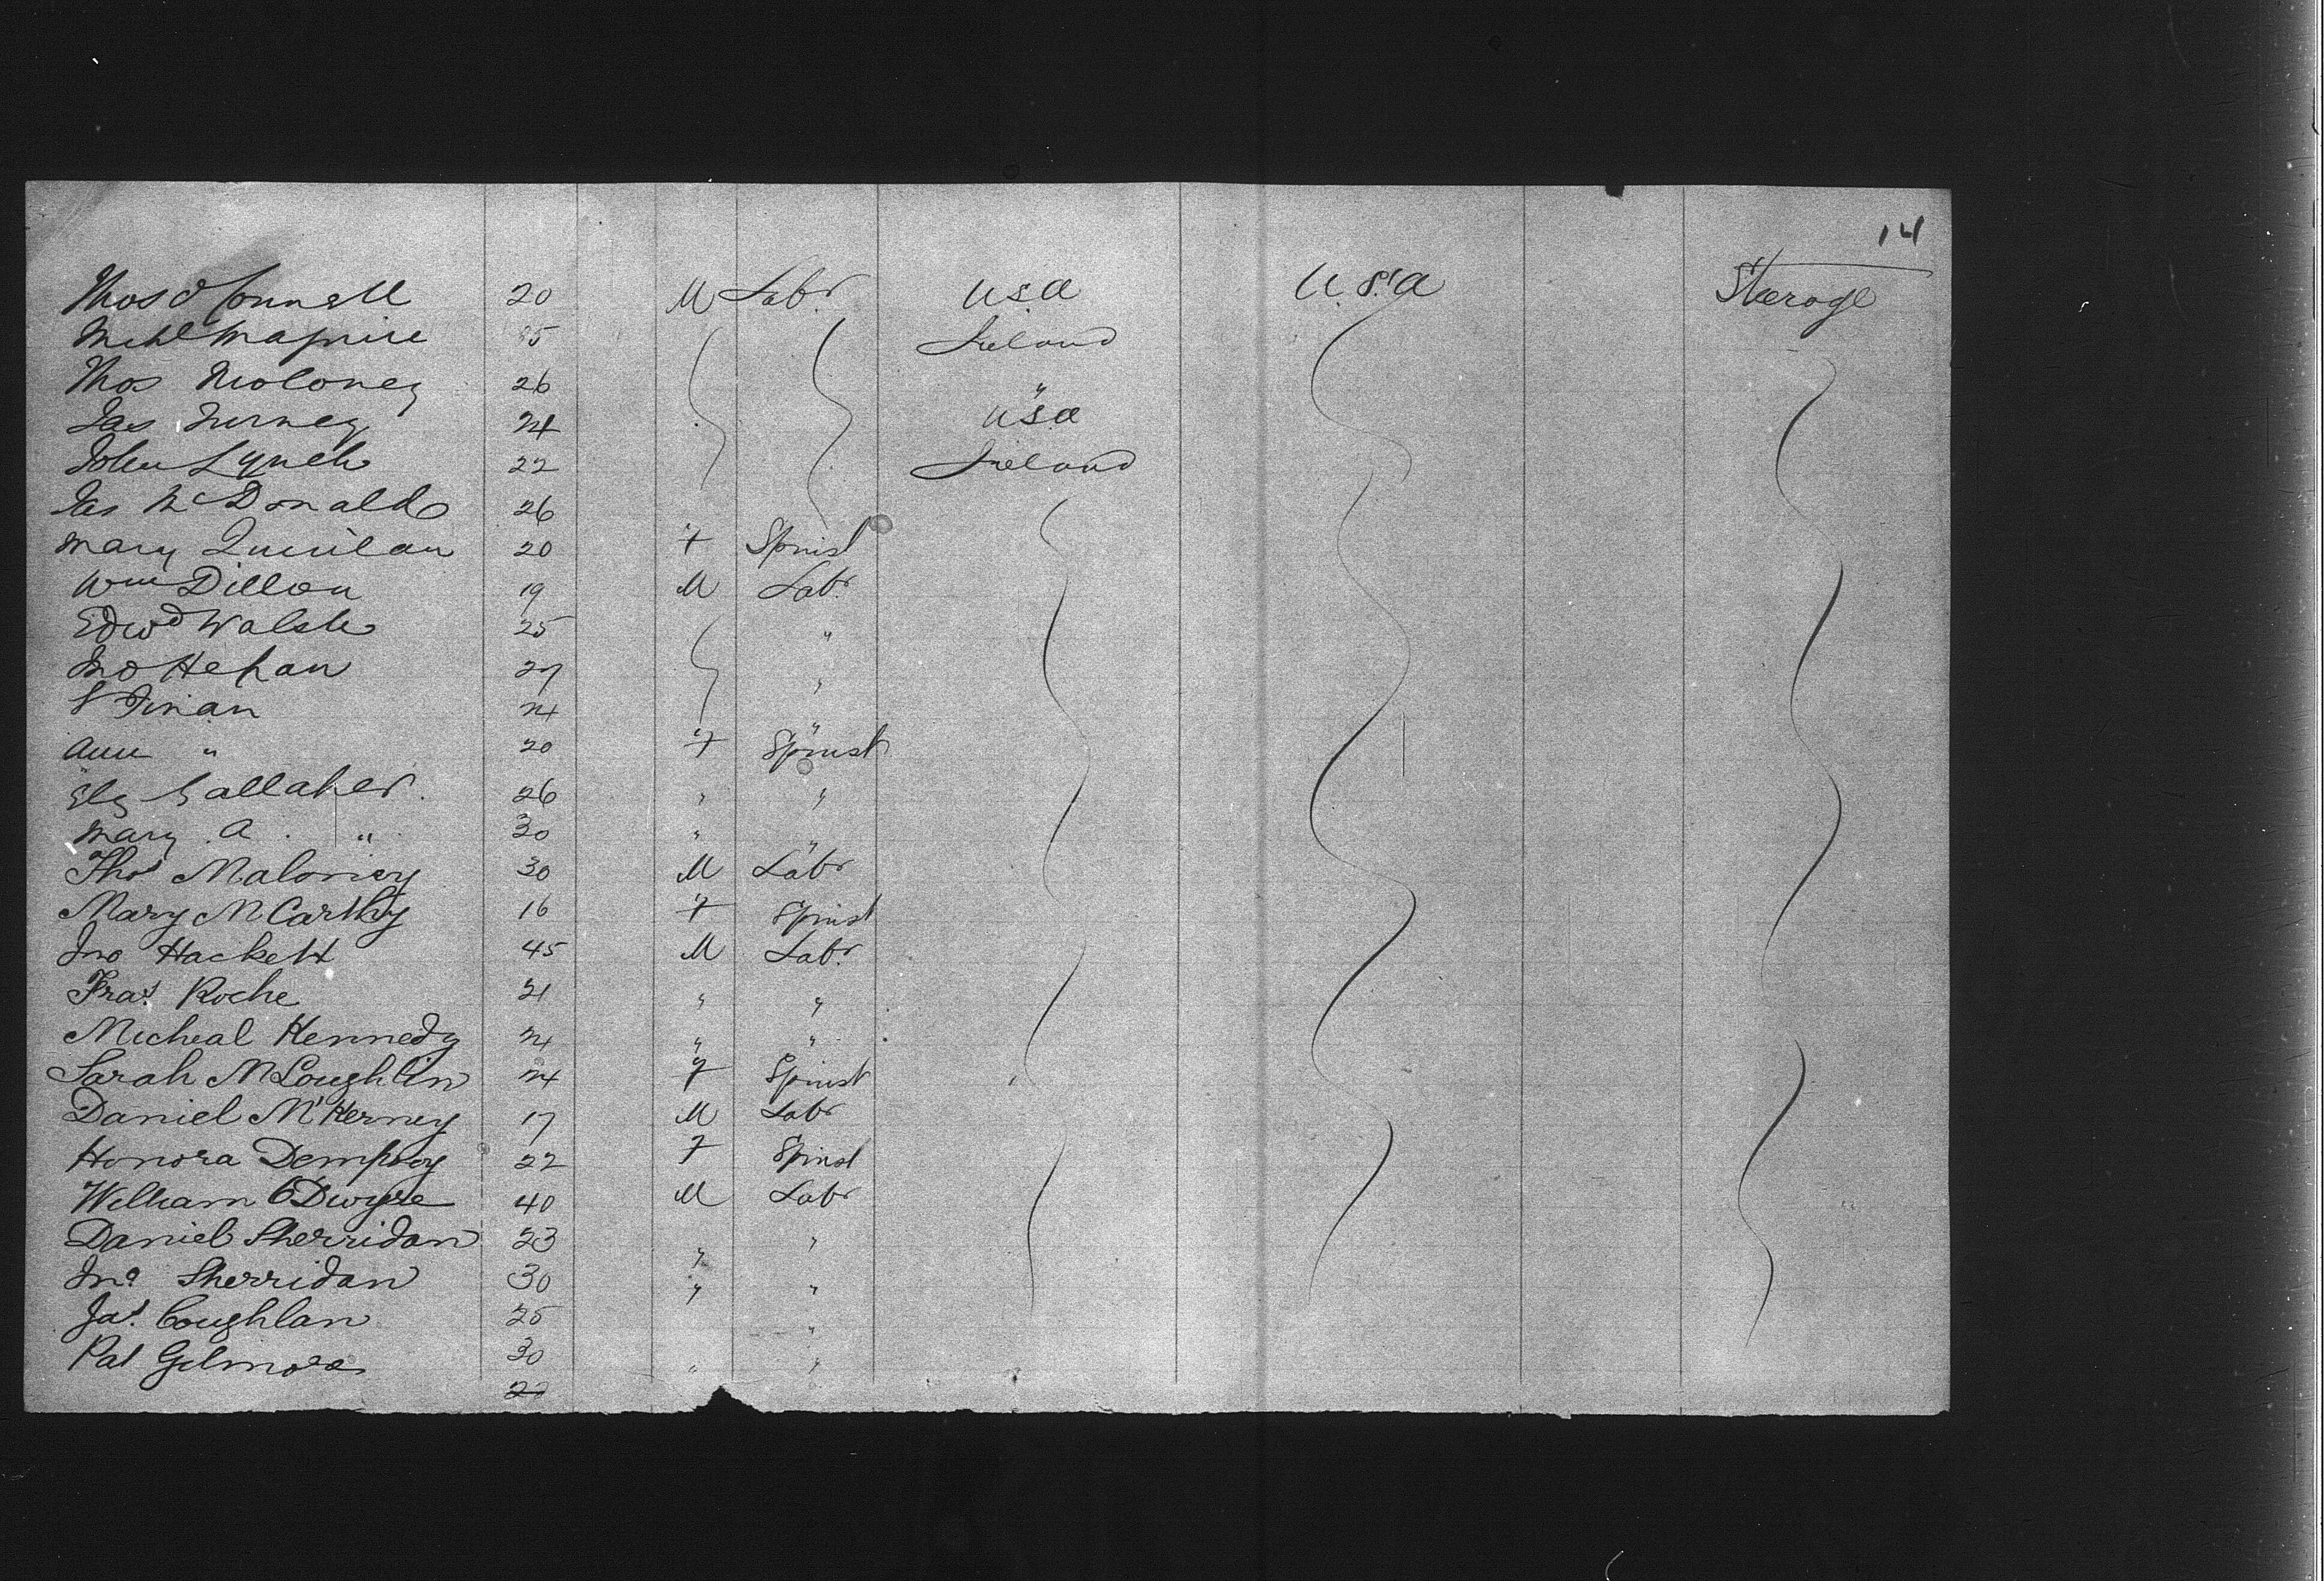 14
Thos O Connell 20 M Labr. U.S.A U.S.A Steerage
Michl Maguire 25 Ireland
Thos Moloney 26 "
Jas Turney 24 U.S.A
John Lynch 22 Ireland
Jas McDonald 26
Mary Quinlan 20 F Spinst
Wm Dillon 19 M Labr.
Edwd Walsh 25 "
Jno Hehan 27 "
S Finan 24 "
Ann " 20 F Spinst
Elz Gallaher 26 " "
Mary A. " 30 " "
Thos Maloney 30 M Labr
Mary McCarthy 16 F Spinst
Jno Hackett 45 M Labr.
Fras. Roche 21 " "
Micheal Kennedy 24 " "
Sarah McLoughlin 24 F Spinst
Daniel McKerney 17 M Labr
Honora Dempsey 22 F Spinst
William O'Dwyre 40 M Labr
Daniel Sherridan 23 " "
Jno. Sherridan 30 " "
Jas. Coughlan 25 "
Pat Gilmore 30 " "
22